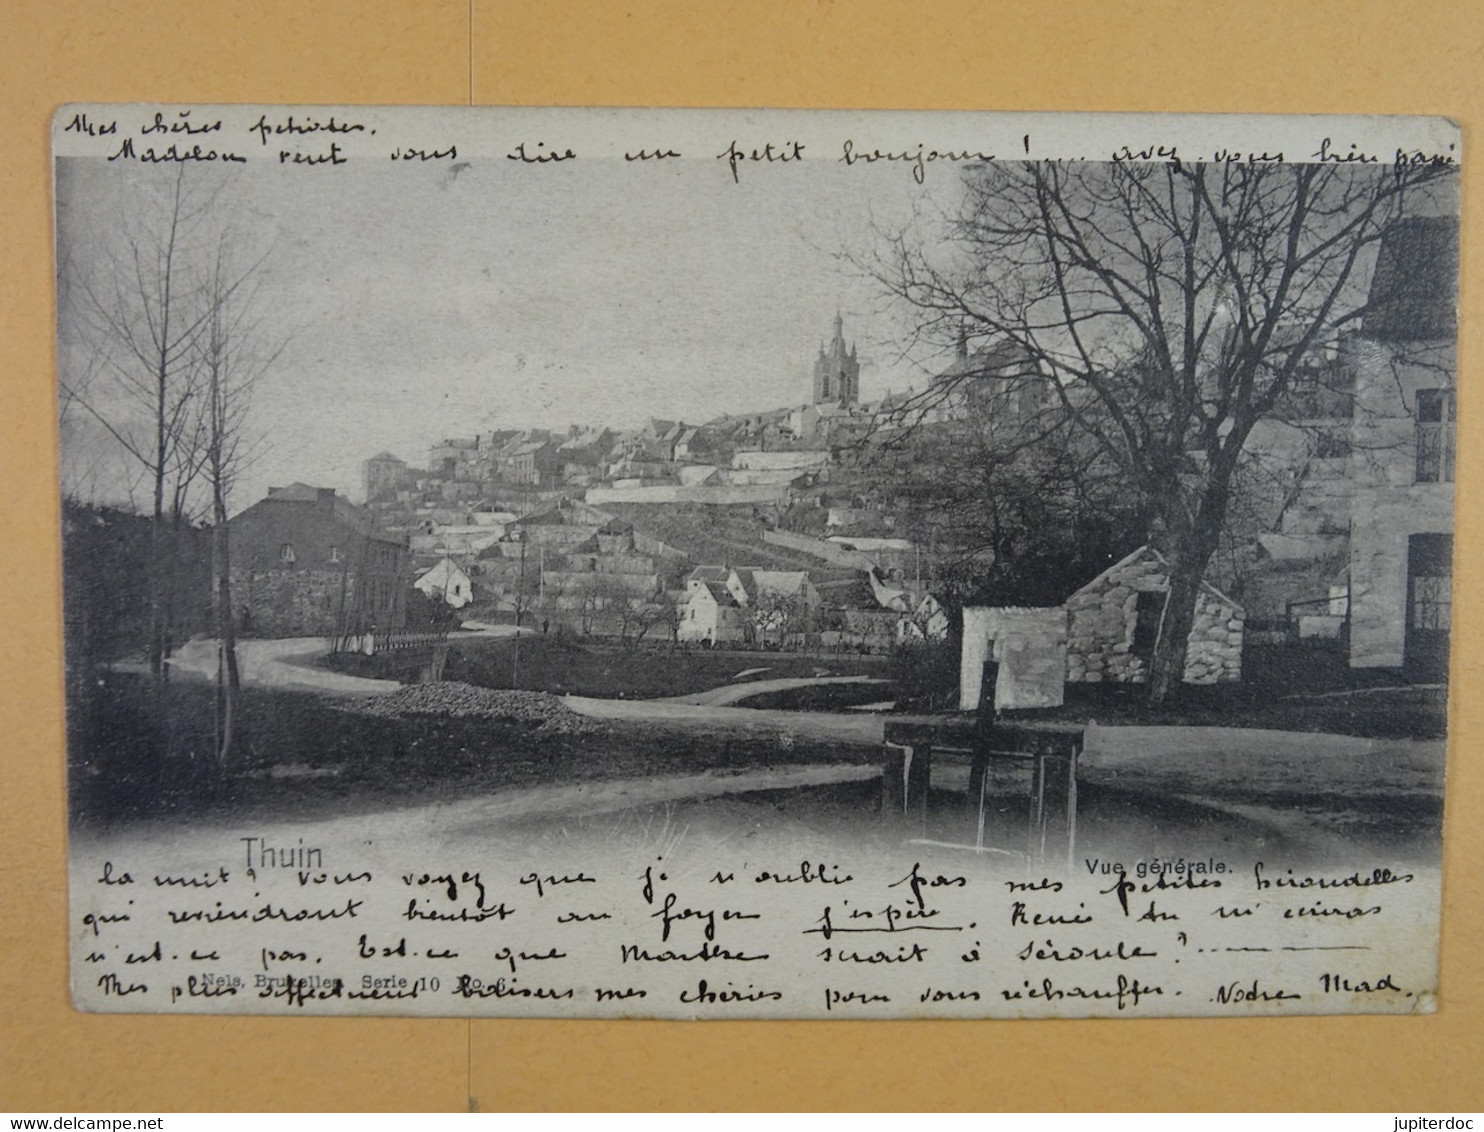 Mes chères petiotes.
Madelou veut vous dire un petit bonjour ! .... avez-vous bien passé
Thuin
Vue générale.
la nuit ? Vous voyez que je n'oublie pas mes petites hirondelles
qui reviendront bientôt au foyer j'espère. Renée tu m'écriras
n'est-ce pas. Est-ce que Marthe serait à ?
Nels, Bruxelles, Serie 10 No. 6
Mes plus affectueux baisers mes chéries pour vous réchauffer. Votre Mad.
jupiterdoc
delcampe.net